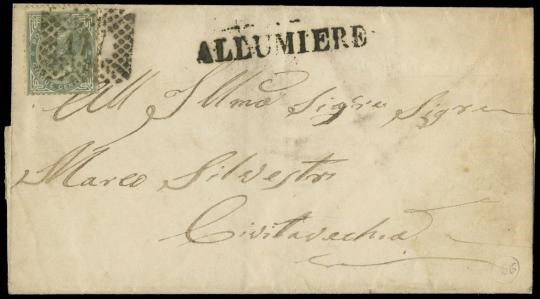 ALLUMIERE
All Illmo Sigre Sigre
Marco Silvestri
Civitavecchia